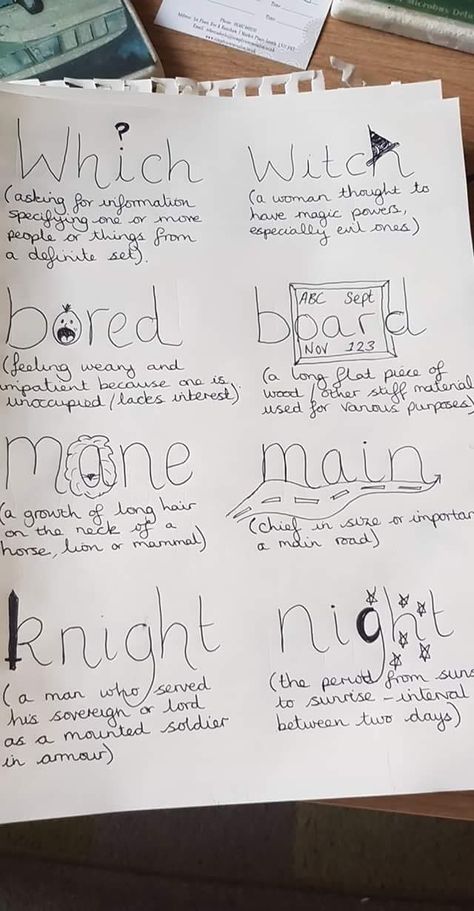 ?
Which
(asking for information
specifying one or more
people or things from
a definite set).
Witch
(a woman thought to
have magic powers,
especially evil ones)
bored
(feeling weary and
impatient because one is
unoccupied/lacks interest)
board
ABC Sept
NOV 123
(a long flat piece of
wood/other stiff material
used for various purposes)
mane
(a growth of long hair
on the neck of a
horse, lion or mammal)
main
(chief in size or importan
a main road)
knight
(a man who served
his sovereign or lord
as a mounted soldier
in armour)
night
(the period from suns
to sunrise - interval
between two days)